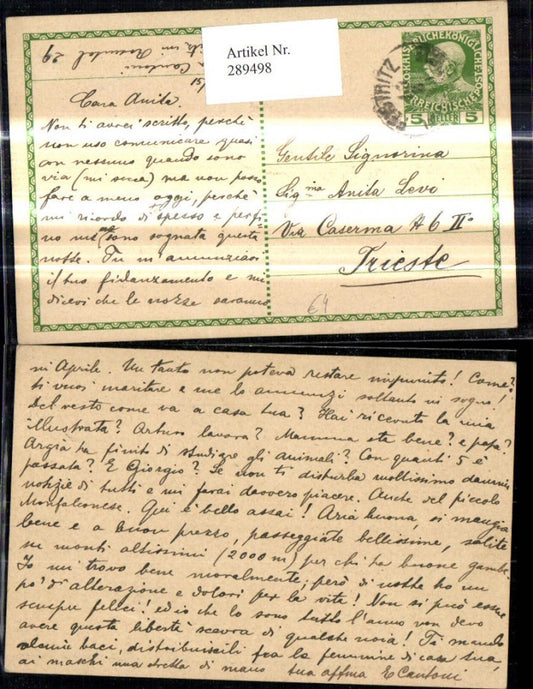 Artikel Nr.
289498
Cantoni
29
KAISERLICHEKÖNIGLICHE
ÖSTERREICHISCHE
5 HELLER 5
FEISTRITZ
Cara Anita.
Non ti avrei scritto, perchè
non uso comunicare quasi
con nessuno quando sono
via (mi secca) ma non posso
fare a meno oggi, perchè
mi ricordo di spesso e perfi
no mi sono sognata questa
notte. Tu m'annunziavi
il tuo fidanzamento e mi
dicevi che le nozze saranno
Gentile Signorina
Sig.ina Anita Levi
Via Caserma N 6 II°
Trieste
64
in Aprile. Un tanto non poteva restare impunito! Come?
ti vuoi maritare e me lo annunzi soltanto in sogno!
Del resto come va a casa tua? Hai ricevuto la mia
illustrata? Arturo lavora? Mamma sta bene? e papà?
Argia ha finito di studiare gli animali? Con quanti 5 è
passata? E Giorgio? Se non ti disturba moltissimo dammi
notizie di tutti e mi farai davvero piacere. Anche del piccolo
Monfalconese. Qui è bello assai! Aria buona, si mangia
bene e a buon prezzo, passeggiate bellissime, salite
su monti altissimi (2000 m) per chi ha buone gambe
Io mi trovo bene moralmente; però di notte ho un
po' di alterazione e dolori per la vita! Non si può essere
sempre felici! ed io che lo sono tutto l'anno non devo
avere questa libertà scevra di qualche noia! Ti mando
alcuni baci, distribuiscili fra le femmine di casa tua,
ai maschi una stretta di mano tua affma E Cantoni